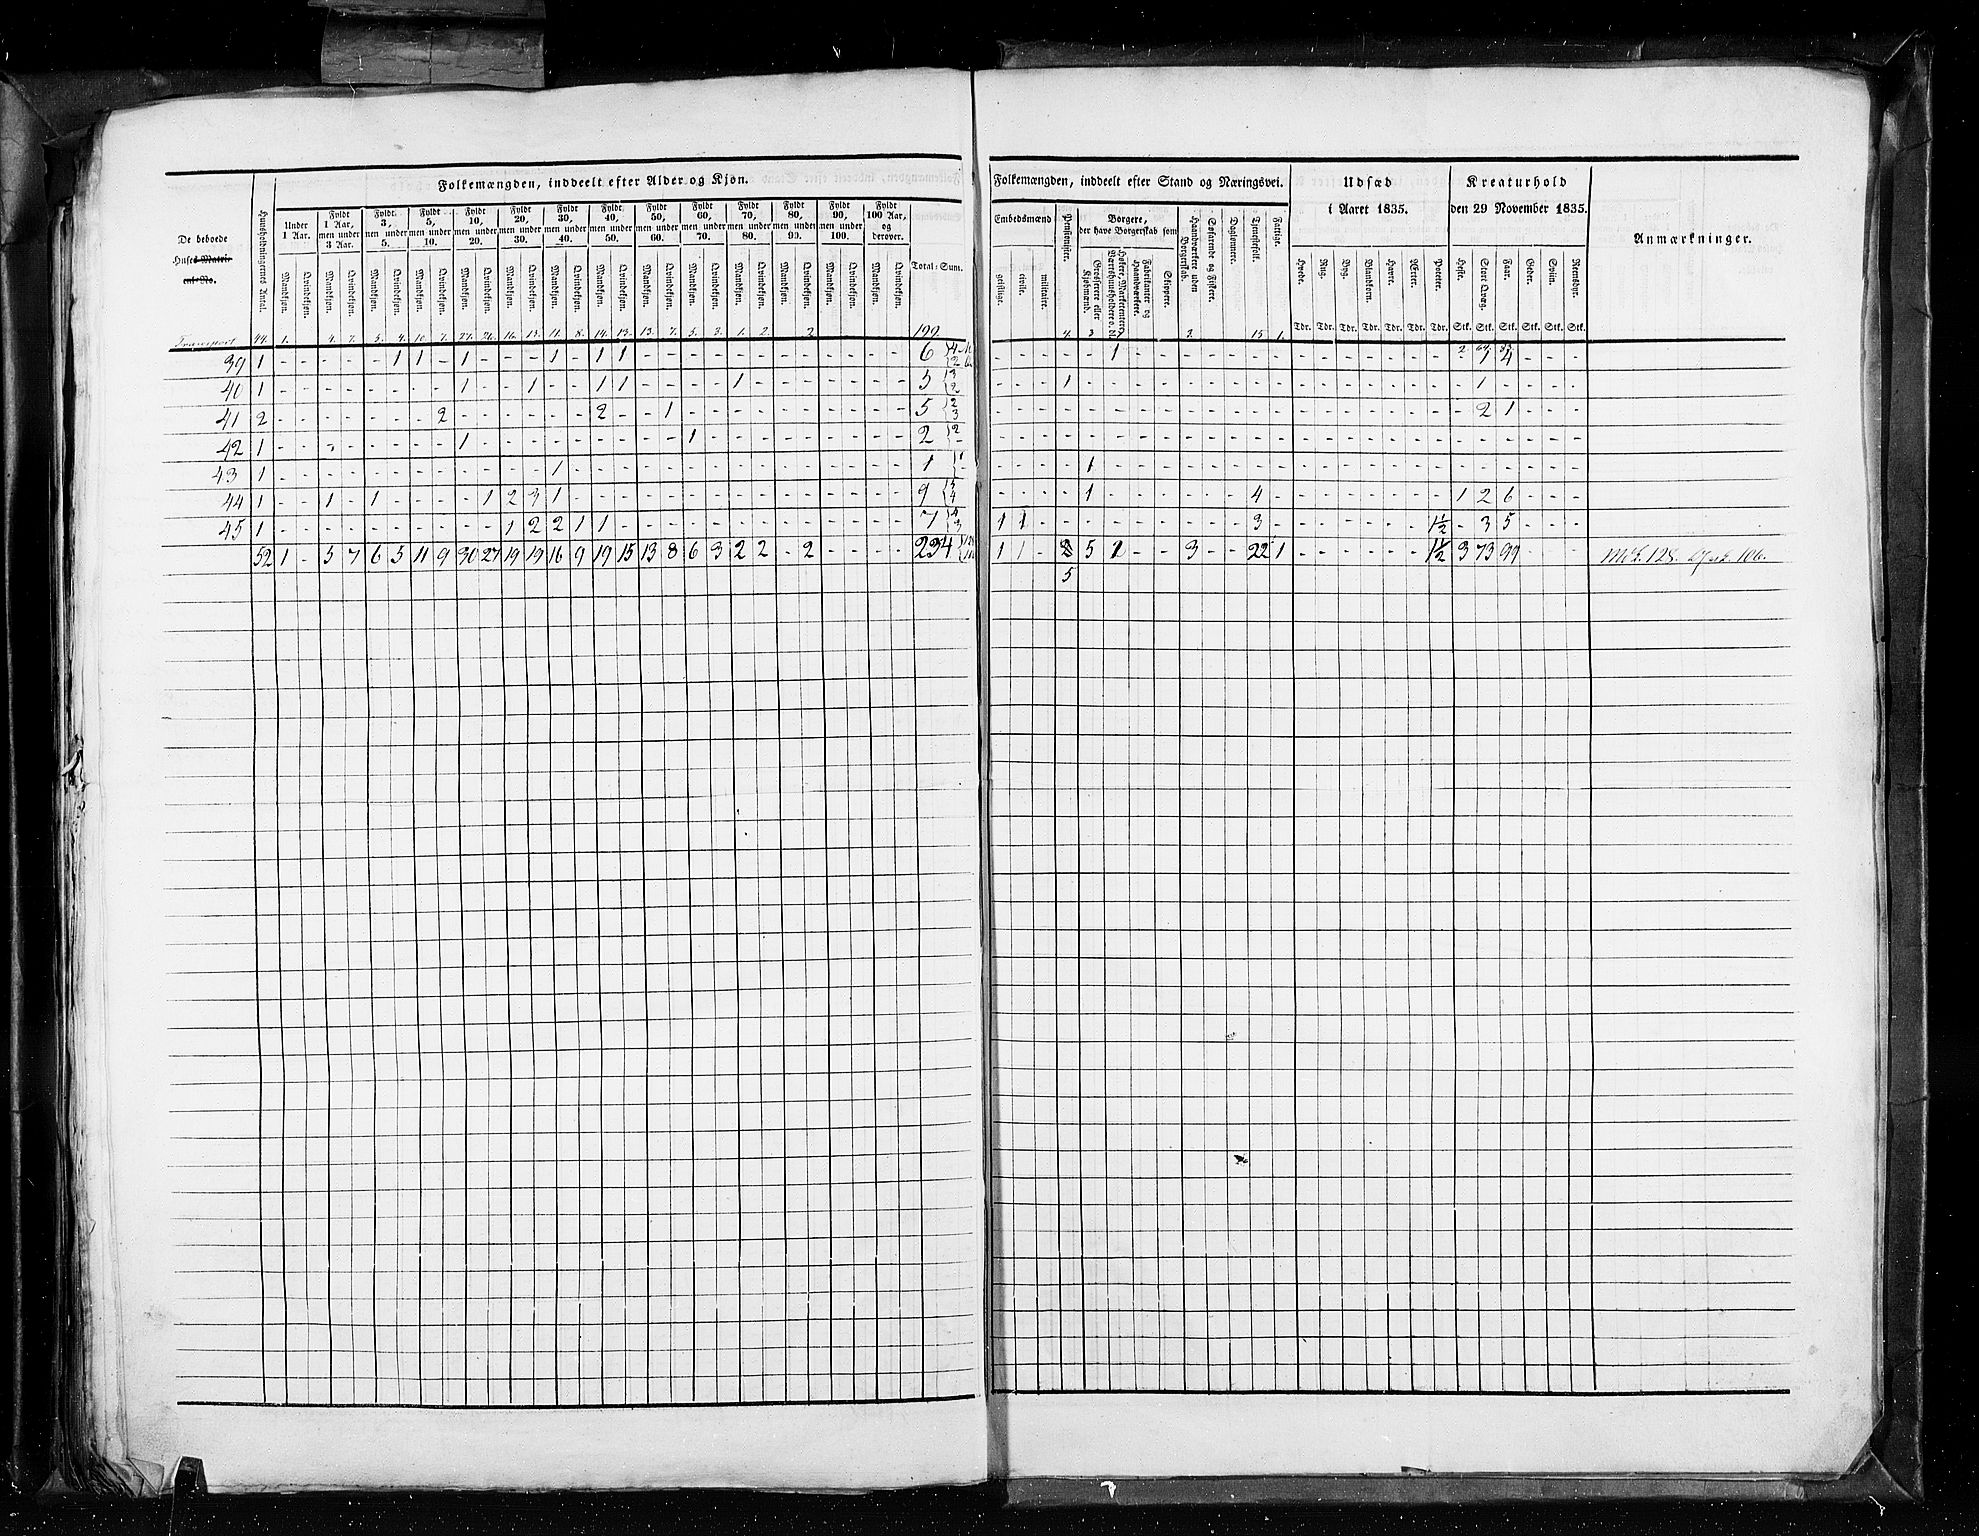 Folkemængden, inddeelt efter Alder og Kjøn.
Folkemængden, inddeelt efter Stand og Næringsvei.
Udsæd i Aaret 1835.
Kreaturhold den 29 November 1835.
Anmærkninger.
De beboede Huses Matric-cul-No.
Huusholdningernes Antal.
Under 1 Aar.
Fyldt 1 Aar, men under 3 Aar.
Fyldt 3, men under 5.
Fyldt 5, men under 10.
Fyldt 10, men under 20.
Fyldt 20, men under 30.
Fyldt 30, men under 40.
Fyldt 40, men under 50.
Fyldt 50, men under 60.
Fyldt 60, men under 70.
Fyldt 70, men under 80.
Fyldt 80, men under 90.
Fyldt 90, men under 100.
Fyldt 100 Aar, og derover.
Mandkjøn. Qvindekjøn.
Total-Sum.
Embedsmænd
geistlige. civile. militaire.
Pensionister.
Borgere, der have Borgerskab som
Grosserere eller Kjøbmænd.
Høkere, Marketentere, Værtshuusholdere o. d.
Fabrikanter og Haandværkere.
Skippere.
Haandværkere uden Borgerskab.
Søfarende og Fiskere.
Daglønnere.
Tjenestefolk.
Fattige.
Hvede. Rug. Byg. Blandkorn. Havre. Ærter. Poteter.
Tdr. Tdr. Tdr. Tdr. Tdr. Tdr. Tdr.
Heste. Stort Qvæg. Faar. Geder. Sviin. Reensdyr.
Stk. Stk. Stk. Stk. Stk. Stk.
Transport 44. 1. 4. 7. 5. 4. 10. 7. 27. 26. 16. 13. 11. 8. 14. 13. 13. 7. 5. 3. 1. 2. 2 199 4. 3 2. 15. 1. 2 64 83
39 1 - - - - - 1 1 - 1 - - - 1 - 1 1 - - - - - - - - - - - - 6 4 2 - - - - - 1 - - - - - - - - - - - - - - - 1 4 - - -
40 1 - - - - - - - - 1 - - 1 - - 1 1 - - - - 1 - - - - - - - 5 3 2 - - - 1 - - - - - - - - - - - - - - - - - - 1 - - - -
41 2 - - - - - - - 2 - - - - - - 2 - - 1 - - - - - - - - - - 5 2 3 - - - - - - - - - - - - - - - - - - - - - - 2 1 - - -
42 1 - - - - - - - - 1 - - - - - - - - - 1 - - - - - - - - - 2 2 - - - - - - - - - - - - - - - - - - - - - - - - - - - -
43 1 - - - - - - - - - - - - 1 - - - - - - - - - - - - - - - 1 1 - - - - - 1 - - - - - - - - - - - - - - - - - - - - - -
44 1 - - 1 - 1 - - - - 1 2 3 1 - - - - - - - - - - - - - - - 9 5 4 - - - - 1 - - - - - - - 4 - - - - - - - - 1 2 6 - - -
45 1 - - - - - - - - - - 1 2 2 1 1 - - - - - - - - - - - - - 7 4 3 1 1 - - - - - - - - - - 3 - - - - - - - 1½ - 3 5 - - -
52 1 - 5 7 6 5 11 9 30 27 19 19 16 9 19 15 13 8 6 3 2 2 - 2 - - - - 234 1 1 - 5 2 - - 3 - - 22 1 - - - - - - 1½ 3 73 99 - - - 128. 106.
5